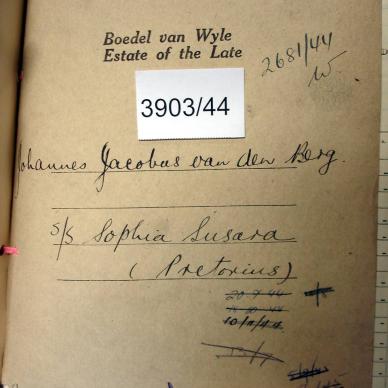 Boedel van Wyle
Estate of the Late
2681/44
3903/44
Johannes Jacobus van den Berg.
s/s Sophia Susara
(Pretorius)
20 9 44
10/11/44